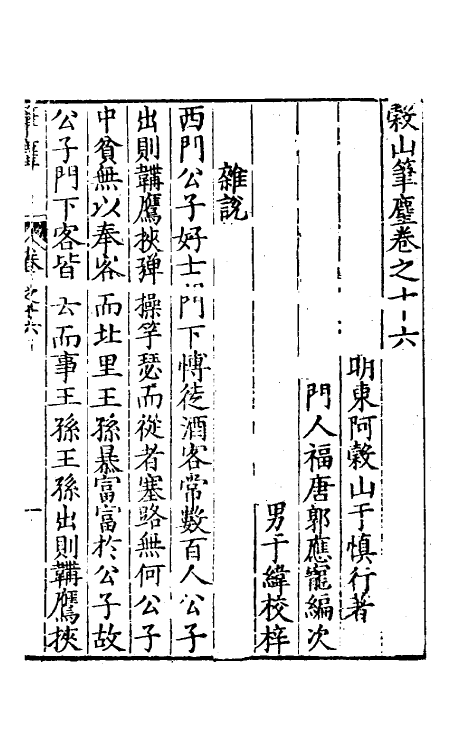 穀山筆麈卷之十六
明東阿穀山于慎行著
門人福唐郭應寵編次
男于緯校梓
雜說
西門公子好士門下慱徒酒客常數百人公子
出則韝鷹挾彈操竽瑟而從者塞路無何公子
中貧無以奉客而北里王孫暴富富於公子故
公子門下客皆去而事王孫王孫出則韝鷹挾
卷之十六
一